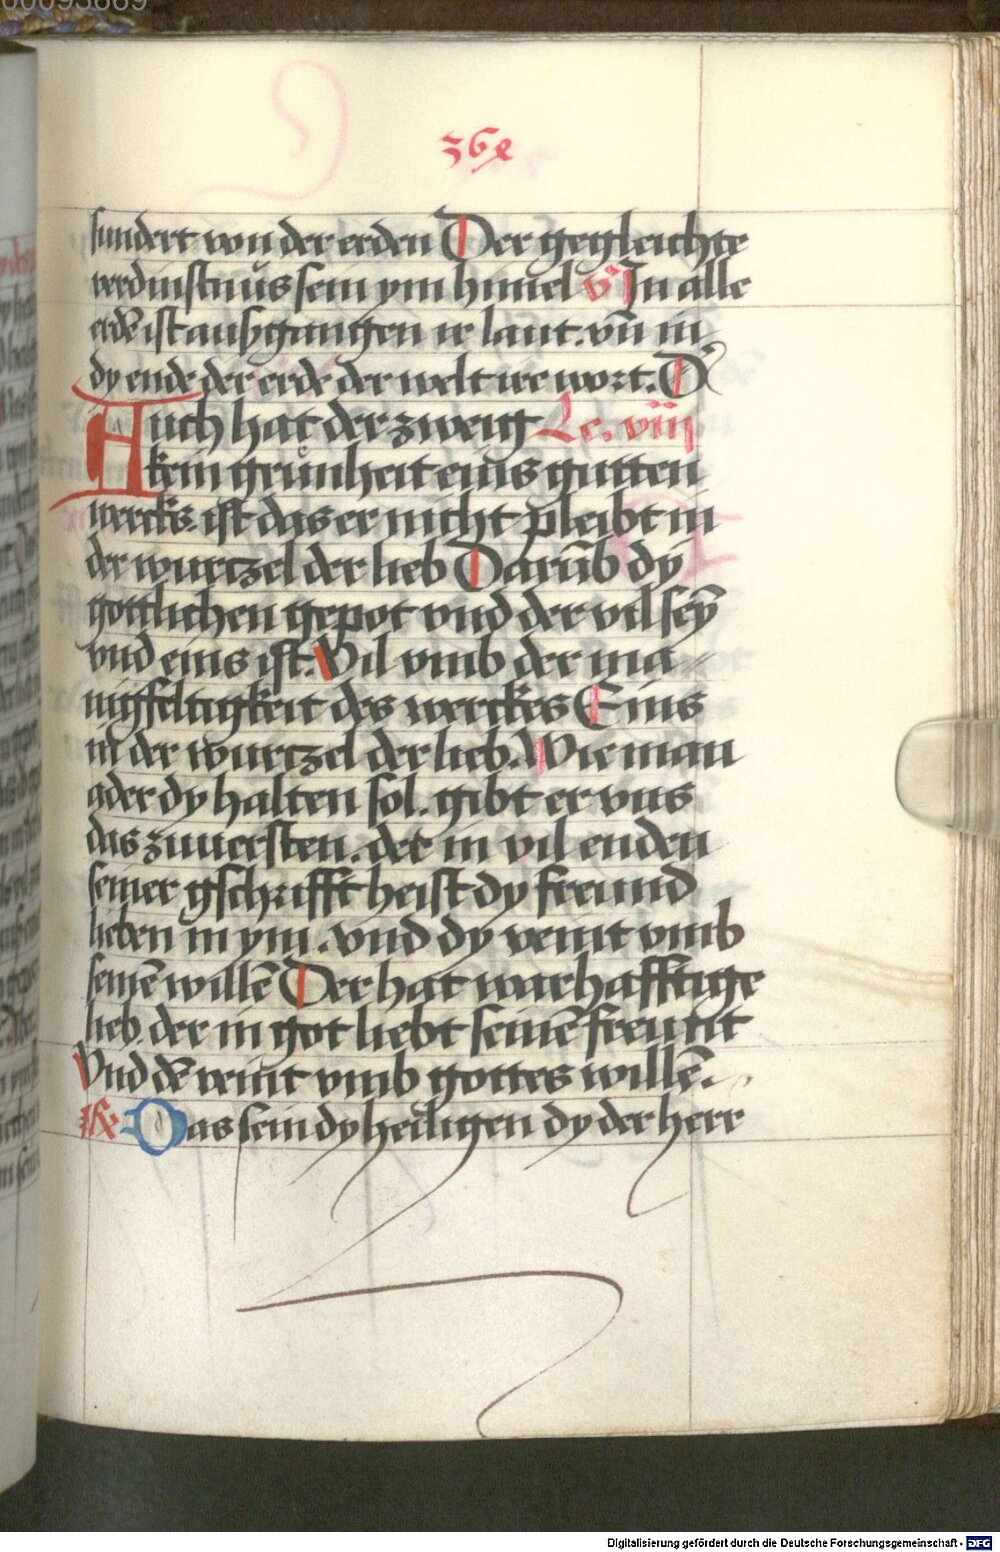 00093669
368
sundert von der erden Der gegleichte
verdinstnus sein ym himel v̊ In alle
erdē ist außgangen ir laut. vn̄ in
dy ende der erde der welt ire wort. D
Auch hat der zweig Lc. viij
kein grůnheit eins gutten
wercks ist das er nicht pleibt in
der wurtzel der lieb Darūb dy
gottlichen gepot vnd der vil seӯ
vnd eins ist. Vil vmb der ma-
nigfeltigkeit des werckes Eins
in der wurtzel der lieb. Wie man
oder dy halten sol. gibt er vns
das zuuersten. der in vil enden
seiner gschrifft heist dy freund
lieben in ym. vnd dy veint vmb
seinē willē Der hat warhafftige
lieb. der in got liebt seinē freunt
Vnd dē veint vmb gottes willē.
R Das sein dy heiligen dy der herr
Digitalisierung gefördert durch die Deutsche Forschungsgemeinschaft - DFG